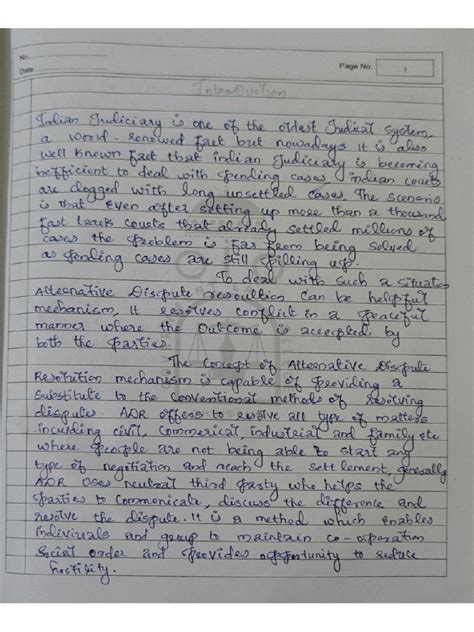 No.
Date
Page No. 1
Introduction
Indian Judiciary is one of the oldest Judical System,
a world-renowed fact but nowadays it is also
well known fact that indian Judiciary is becoming
inefficient to deal with pending cases, indian courts
are clogged with long unsettled cases. The scenario
is that even after setting up more than a thousand
fast track courts that already settled millions of
cases the problem is far from being solved
as pending cases are still pilling up.
To deal with such a situation
Alternative Dispute resoultion can be helpful
mechanism, it resolves conflict in a peaceful
manner where the outcome is accepted by
both the parties.
The Concept of Alternative Dispute
Resolution mechanism is capable of providing a
substitute to the conventional methods of resolving
dispute. ADR offers to resolve all type of matters
incuiding civil, Commerical, industrial and family etc
where people are not being able to start any
type of negitiation and reach the settlement, generally
ADR uses neutral third party who helps the
parties to Communicate, discuss the difference and
resolve the dispute. It is a method which enables
indiviuals and group to maintain co-operation
Social order and provides opportunity to reduce
hostility.